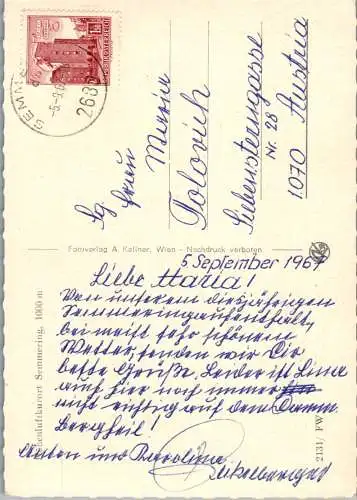 SEMMER
-5.-9.6
2680
REPUBLIK ÖSTERREICH
Sg. Frau
Maria
Polovich
Siebensterngasse
Nr. 28
1070 Austria
Fotoverlag A. Kellner, Wien - Nachdruck verboten
5 September 1967
Liebe Maria!
Von unserem diesjährigen
Semmeringaufenthalt,
bei meist sehr schönem
Wetter, senden wir Dir
beste Grüße. Leider ist Lina
auch hier noch immer
nicht richtig auf dem Damm
Bergheil!
Anton und Karolina
Höhenluftkurort Semmering, 1000 m
2131/ FW